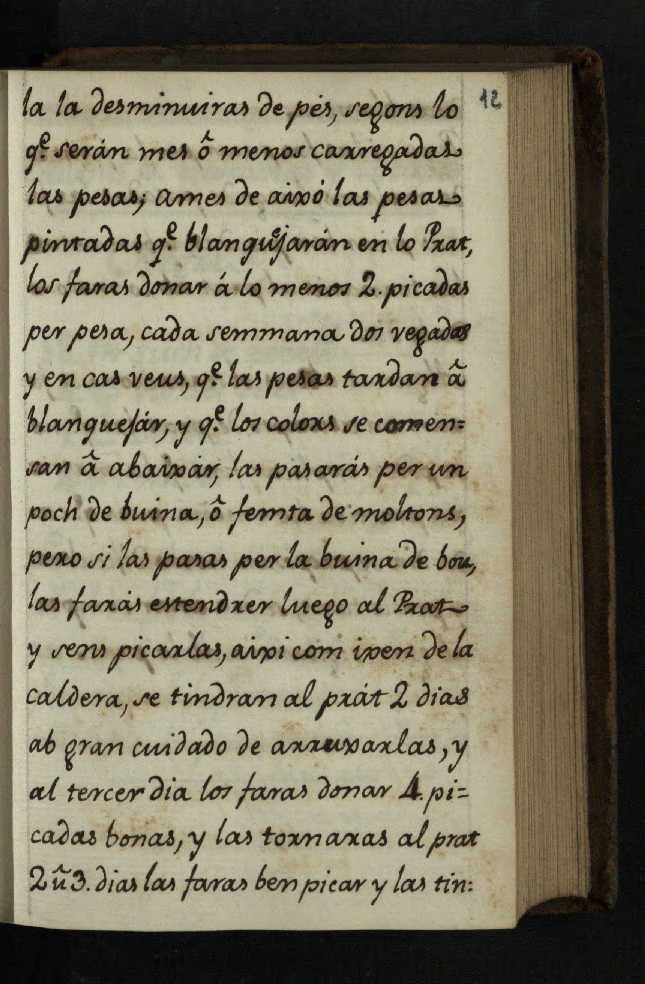 la la desminuiras de pés, segons lo
12
q.e serán mes ô menos carregadas
las pesas; ames de aixó las pesas
pintadas q.e blanquejarán en lo Prat,
los faras donar á lo menos 2. picadas
per pesa, cada semmana dos vegadas
y en cas veus, q.e las pesas tardan â
blanquejár, y q.e los colors se comen=
san â abaixár, las pasarás per un
poch de buina, ô femta de moltons,
pero si las pasas per la buina de bou,
las farás estendrer luego al Prat
y sens picarlas, aixi com ixen de la
caldera, se tindran al prát 2 dias
ab gran cuidado de arruxarlas, y
al tercer dia los faras donar 4. pi=
cadas bonas, y las tornaras al prat
2 û 3. dias las faras ben picar y las tin=